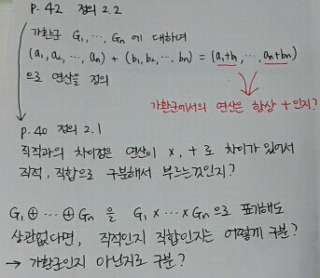 p. 42 정의 2.2
가환군 G₁, ⋯, Gₙ 에 대하여
(a₁, a₂, ⋯, aₙ) + (b₁, b₂, ⋯, bₙ) = (a₁+b₁, ⋯, aₙ+bₙ)
으로 연산을 정의
가환군에서의 연산은 항상 + 인지?
p. 40 정의 2.1
직적과의 차이점은 연산이 ×, + 로 차이가 있어서
직적, 직합으로 구분해서 부르는것인지?
G₁ ⊕ ⋯ ⊕ Gₙ 을 G₁ × ⋯ × Gₙ 으로 표기해도
상관없다면, 직적인지 직합인지는 어떻게 구분?
→ 가환군인지 아닌지로 구분?